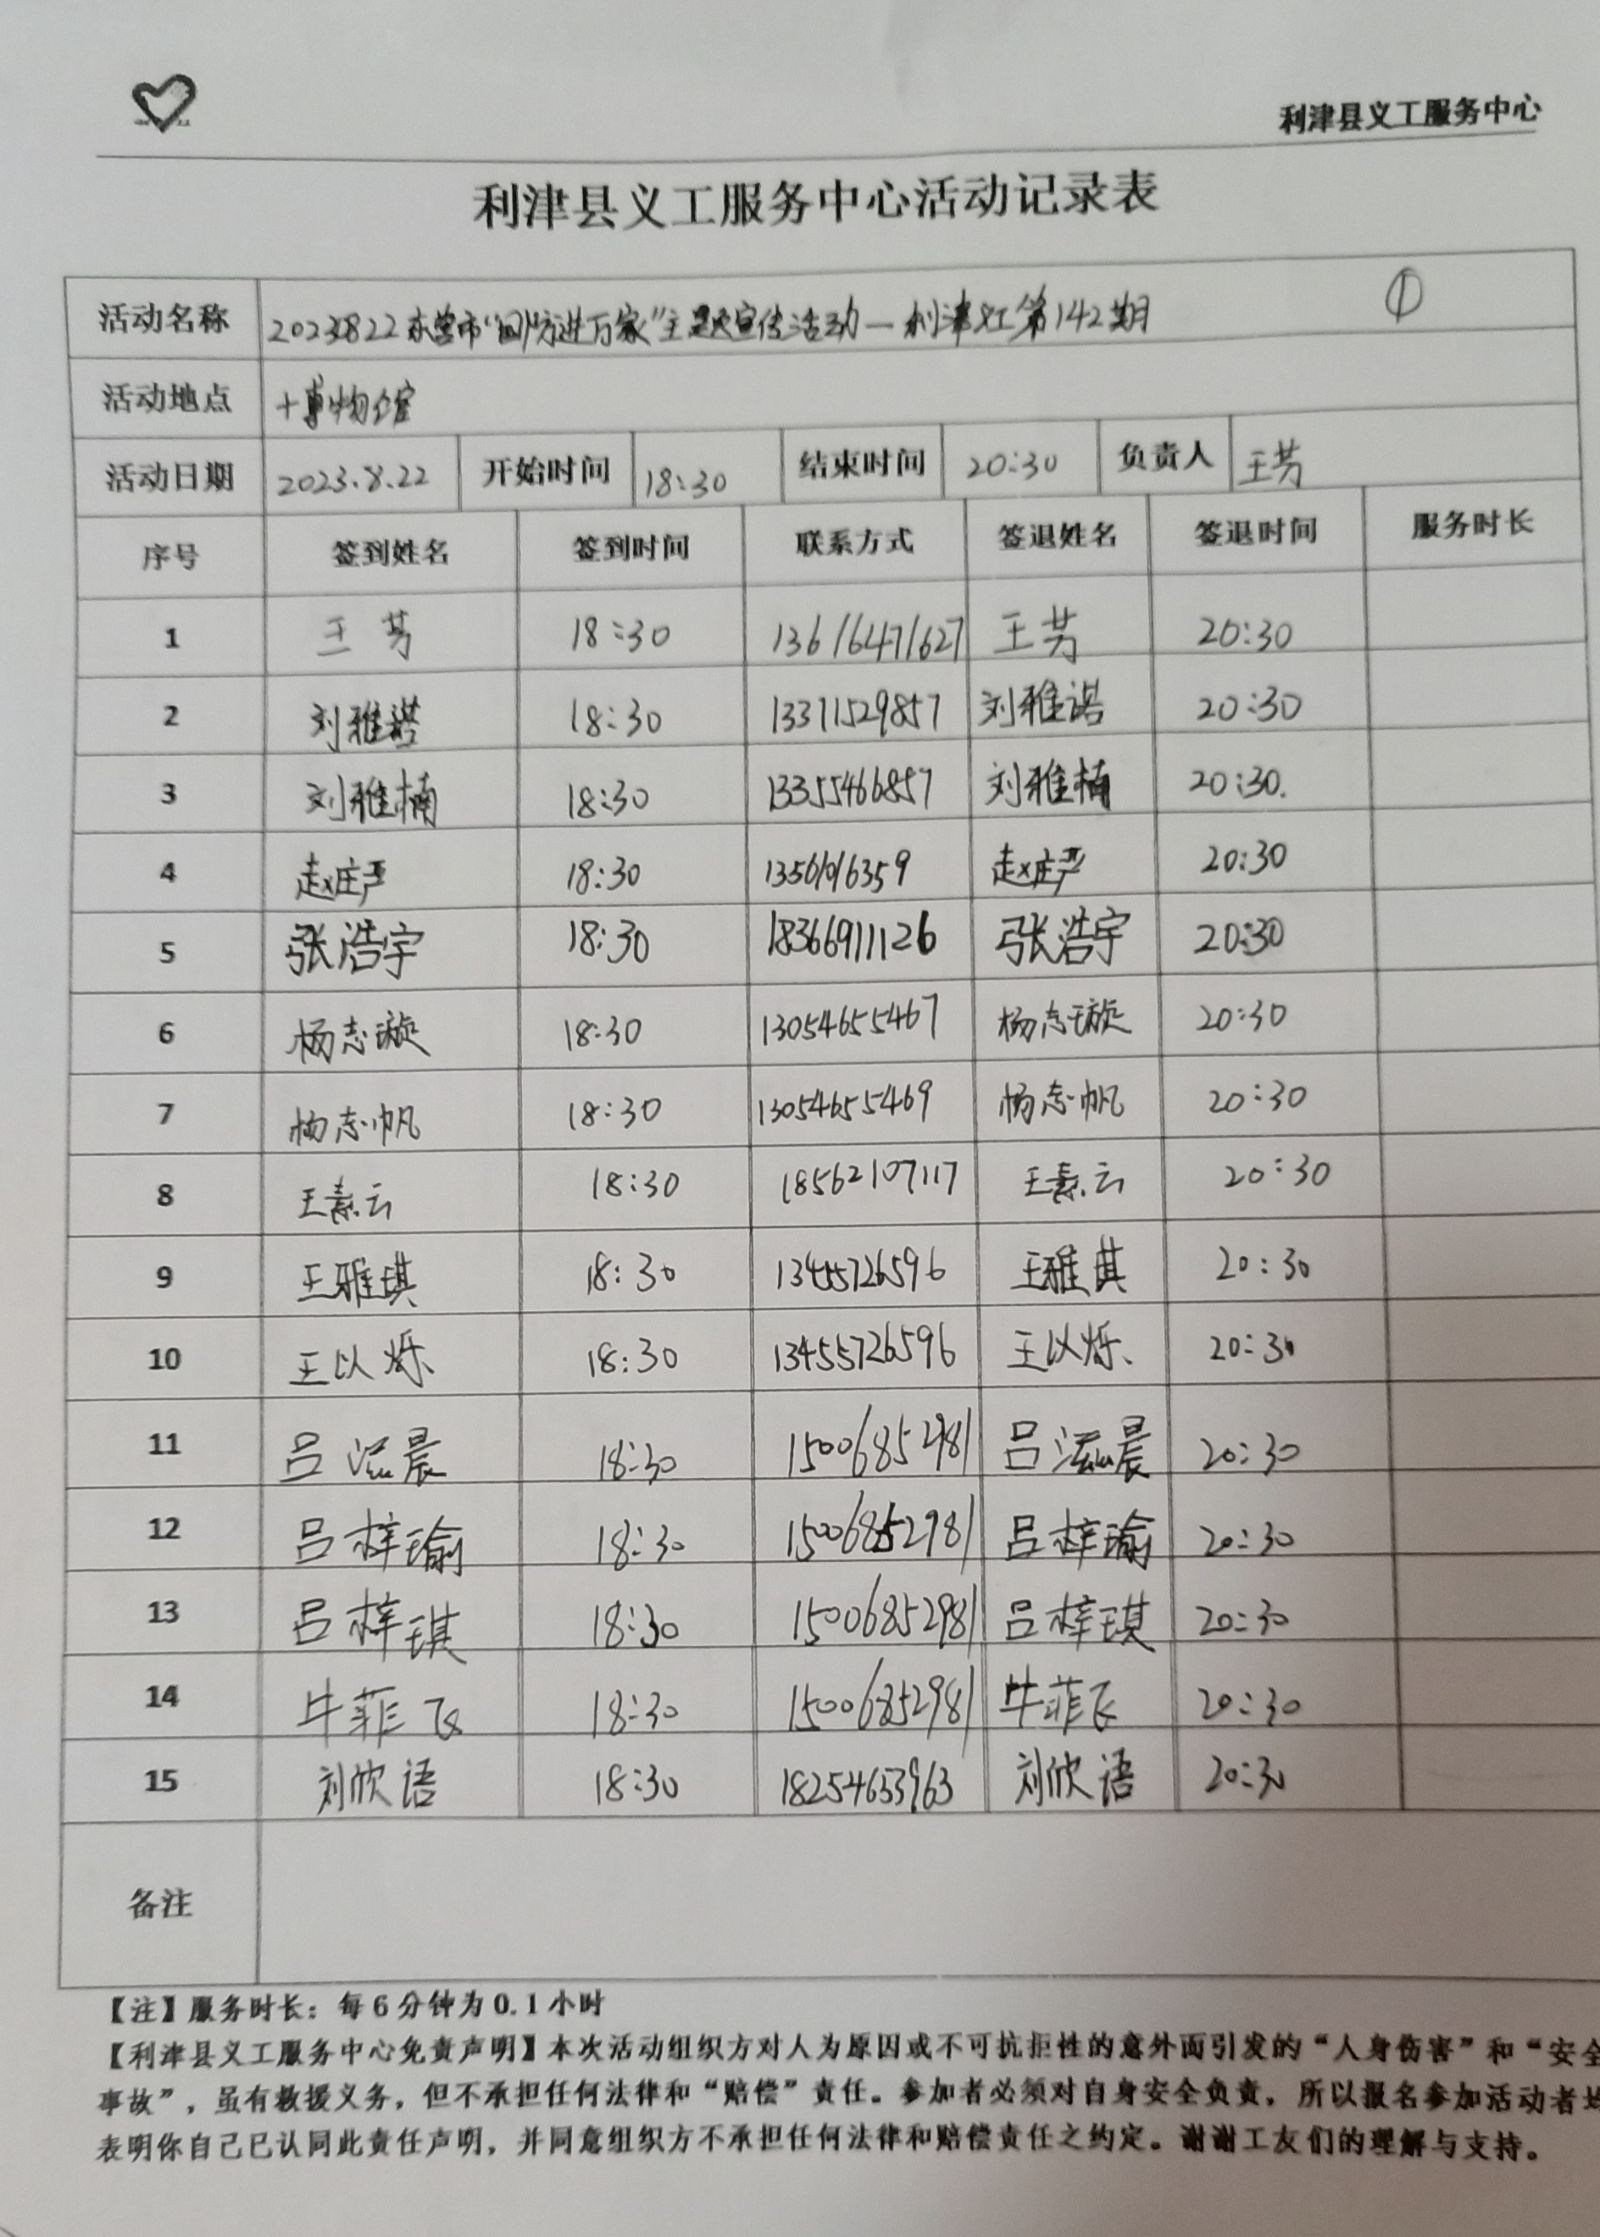 利津县义工服务中心
利津县义工服务中心活动记录表
活动名称 2023822东营市“国防进万家”主题宣传活动一利津义工第142期 ①
活动地点 十博物馆
活动日期 2023.8.22 开始时间 18:30 结束时间 20:30 负责人 王芳
序号 签到姓名 签到时间 联系方式 签退姓名 签退时间 服务时长
1 王芳 18:30 13616471627 王芳 20:30
2 刘雅诺 18:30 13371529857 刘雅诺 20:30
3 刘雅楠 18:30 13355466857 刘雅楠 20:30.
4 赵庄严 18:30 赵庄严 20:30
5 张浩宇 18:30 18366911126 张浩宇 20:30
6 杨志璇 18:30 13054655467 杨志璇 20:30
7 杨志帆 18:30 13054655469 杨志帆 20:30
8 王素云 18:30 18562107117 王素云 20:30
9 王雅琪 18:30 13455726596 王雅琪 20:30
10 王以烁 18:30 13455726596 王以烁 20:30
11 吕滋晨 18:30 15006852981 吕滋晨 20:30
12 吕梓瑜 18:30 15006852981 吕梓瑜 20:30
13 吕梓琪 18:30 15006852981 吕梓琪 20:30
14 牛菲飞 18:30 15006852981 牛菲飞 20:30
15 刘欣语 18:30 18254653963 刘欣语 20:30
备注
【注】服务时长：每6分钟为0.1小时
【利津县义工服务中心免责声明】本次活动组织方对人为原因或不可抗拒性的意外而引发的“人身伤害”和“安全
事故”，虽有救援义务，但不承担任何法律和“赔偿”责任。参加者必须对自身安全负责，所以报名参加活动者均
表明你自己已认同此责任声明，并同意组织方不承担任何法律和赔偿责任之约定。谢谢工友们的理解与支持。